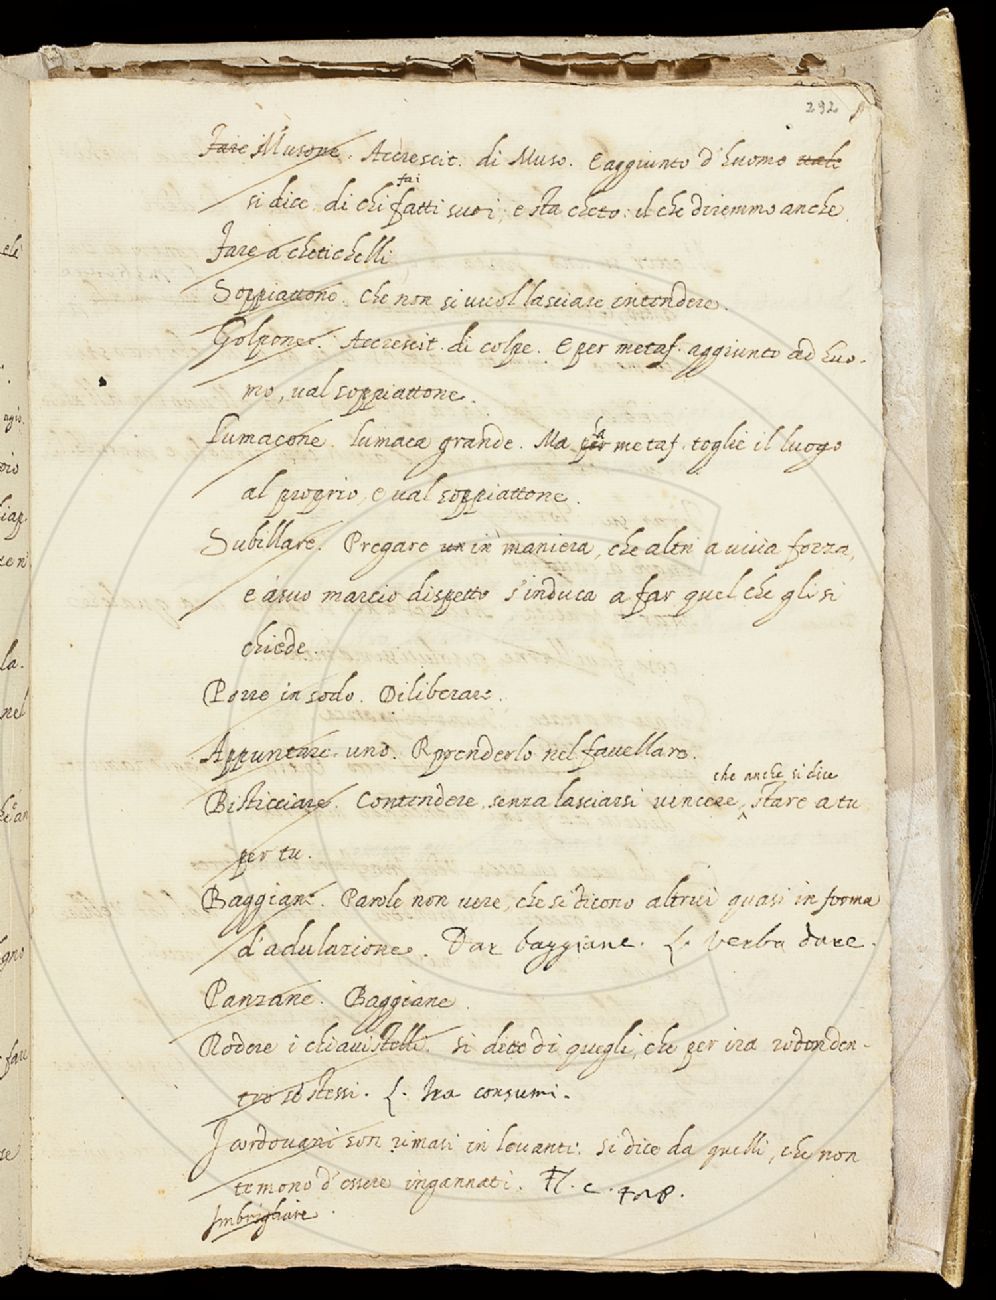 292
Fare Musone. Accrescit. di Muso. E aggiunto d'huomo vale
fai
si dice di chi fatti suoi, e sta cheto: il che diremmo anche
Fare a chetichelli
Soppiattone. Che non si vuol lasciare intendere.
Golpone. Accrescit. di colpe. E per metaf. aggiunto ad huo-
mo, val soppiattone.
Lumacone. Lumaca grande. Ma per la metaf. toglie il luogo
al proprio, e val soppiattone.
Subillare. Pregare un in maniera, che altri a viva forza,
e à suo marcio dispetto s'induca a far quel che gli si
chiede.
Porre in sodo. Diliberare.
Appuntare uno. Riprenderlo nel favellare.
che anche si dice
Bisticciare. Contendere senza lasciarsi vincere, stare a tu
per tu.
Baggiane. Parole non vere, che si dicono altrui quasi in forma
d'adulazione. Dar baggiane. L. Verba dare.
Panzane. Baggiane.
Rodere i chiavistelli. Si dice di quegli, che per ira rodonden-
tro se stessi. L. Ira consumi.
I cordovani son rimasi in levanti. Si dice da quelli, che non
temono d'essere ingannati. Fl. c.
Imbrigliare.
ele
agio
la.
nel
gno
fare